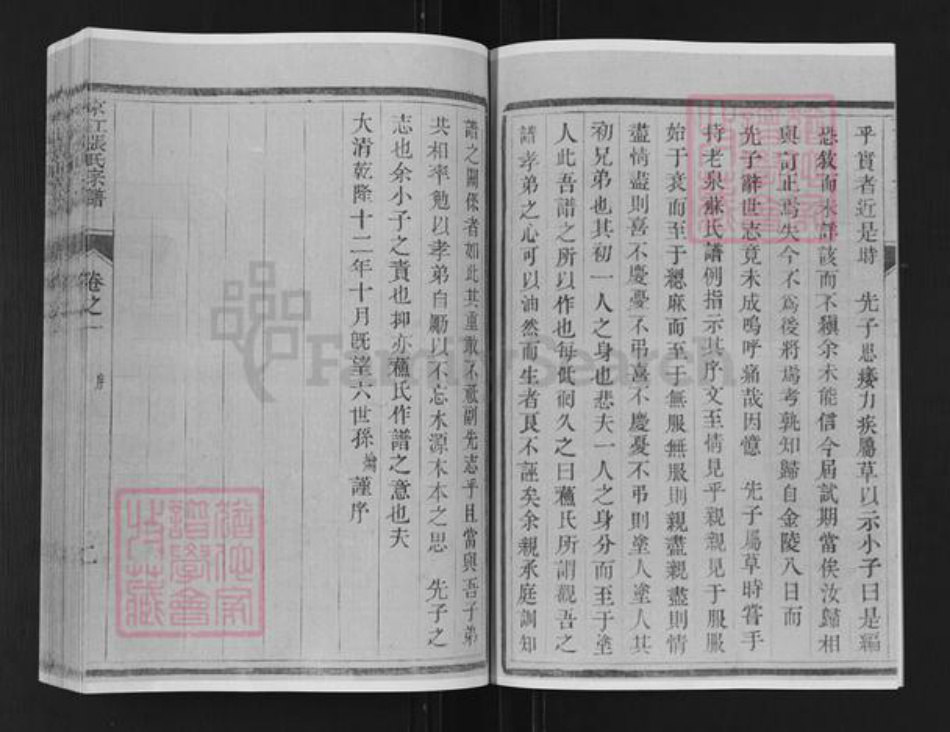 乎實者近是時　先子患痿力疾屬草以示小子曰是編
恐敘而未詳該而不核余未能信今屆試期當俟汝歸相
與訂正焉失今不爲後將焉考孰知歸自金陵八日而
先子辭世志竟未成嗚呼痛哉因憶　先子屬草時嘗手
持老泉蘇氏譜例指示其序文至情見乎親親見于服服
始于衰而至于緦麻而至于無服無服則親盡親盡則情
盡情盡則喜不慶憂不弔喜不慶憂不弔則塗人塗人其
初兄弟也其初一人之身也悲夫一人之身分而至于塗
人此吾譜之所以作也每低徊久之曰蘓氏所謂觀吾之
譜孝弟之心可以油然而生者良不誣矣余親承庭訓知
譜之關係者如此其重敢不亟副先志乎且當與吾子弟
共相率勉以孝弟自勵以不忘水源木本之思　先子之
志也余小子之責也抑亦蘓氏作譜之意也夫
大清乾隆十二年十月旣望六世孫　謹序
京江張氏宗譜
卷之一
序
二
猶他家譜學會收藏
猶他家譜學會收藏
FamilySearch